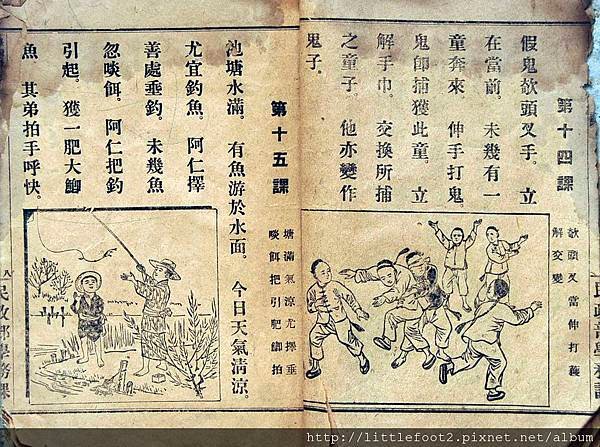 第十四課
欹頭叉當伸打獲
解交變
假鬼欹頭叉手。立
在當前。未幾有一
童奔來 伸手打鬼。
鬼卽捕獲此童。立
解手巾。交換所捕
之童子。他亦變作
鬼子。
第十五課
塘滿氣涼尤擇垂
啖餌把引肥鯽拍
池塘水滿。有魚游於水面。今日天氣清涼。
尤宜釣魚。阿仁擇
善處垂釣。未幾魚
忽啖餌。阿仁把釣
引起。獲一肥大鯽
魚 其弟拍手呼快。
八 民政部學務課
http://littlefoot2.pixnet.net/album